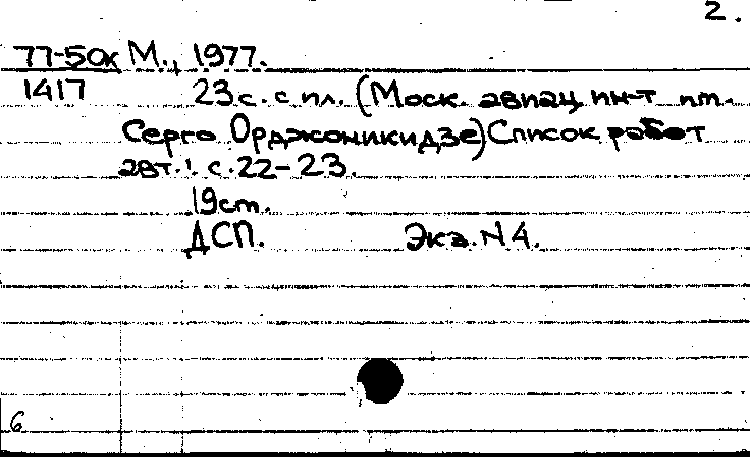 2.
77-50к М., 1977.
1417 23 с. с ил. (Моск. авиац. ин-т им.
Серго Орджоникидзе) Список работ
авт.: с. 22-23.
19см.
ДСП. Экз. N 4.
6